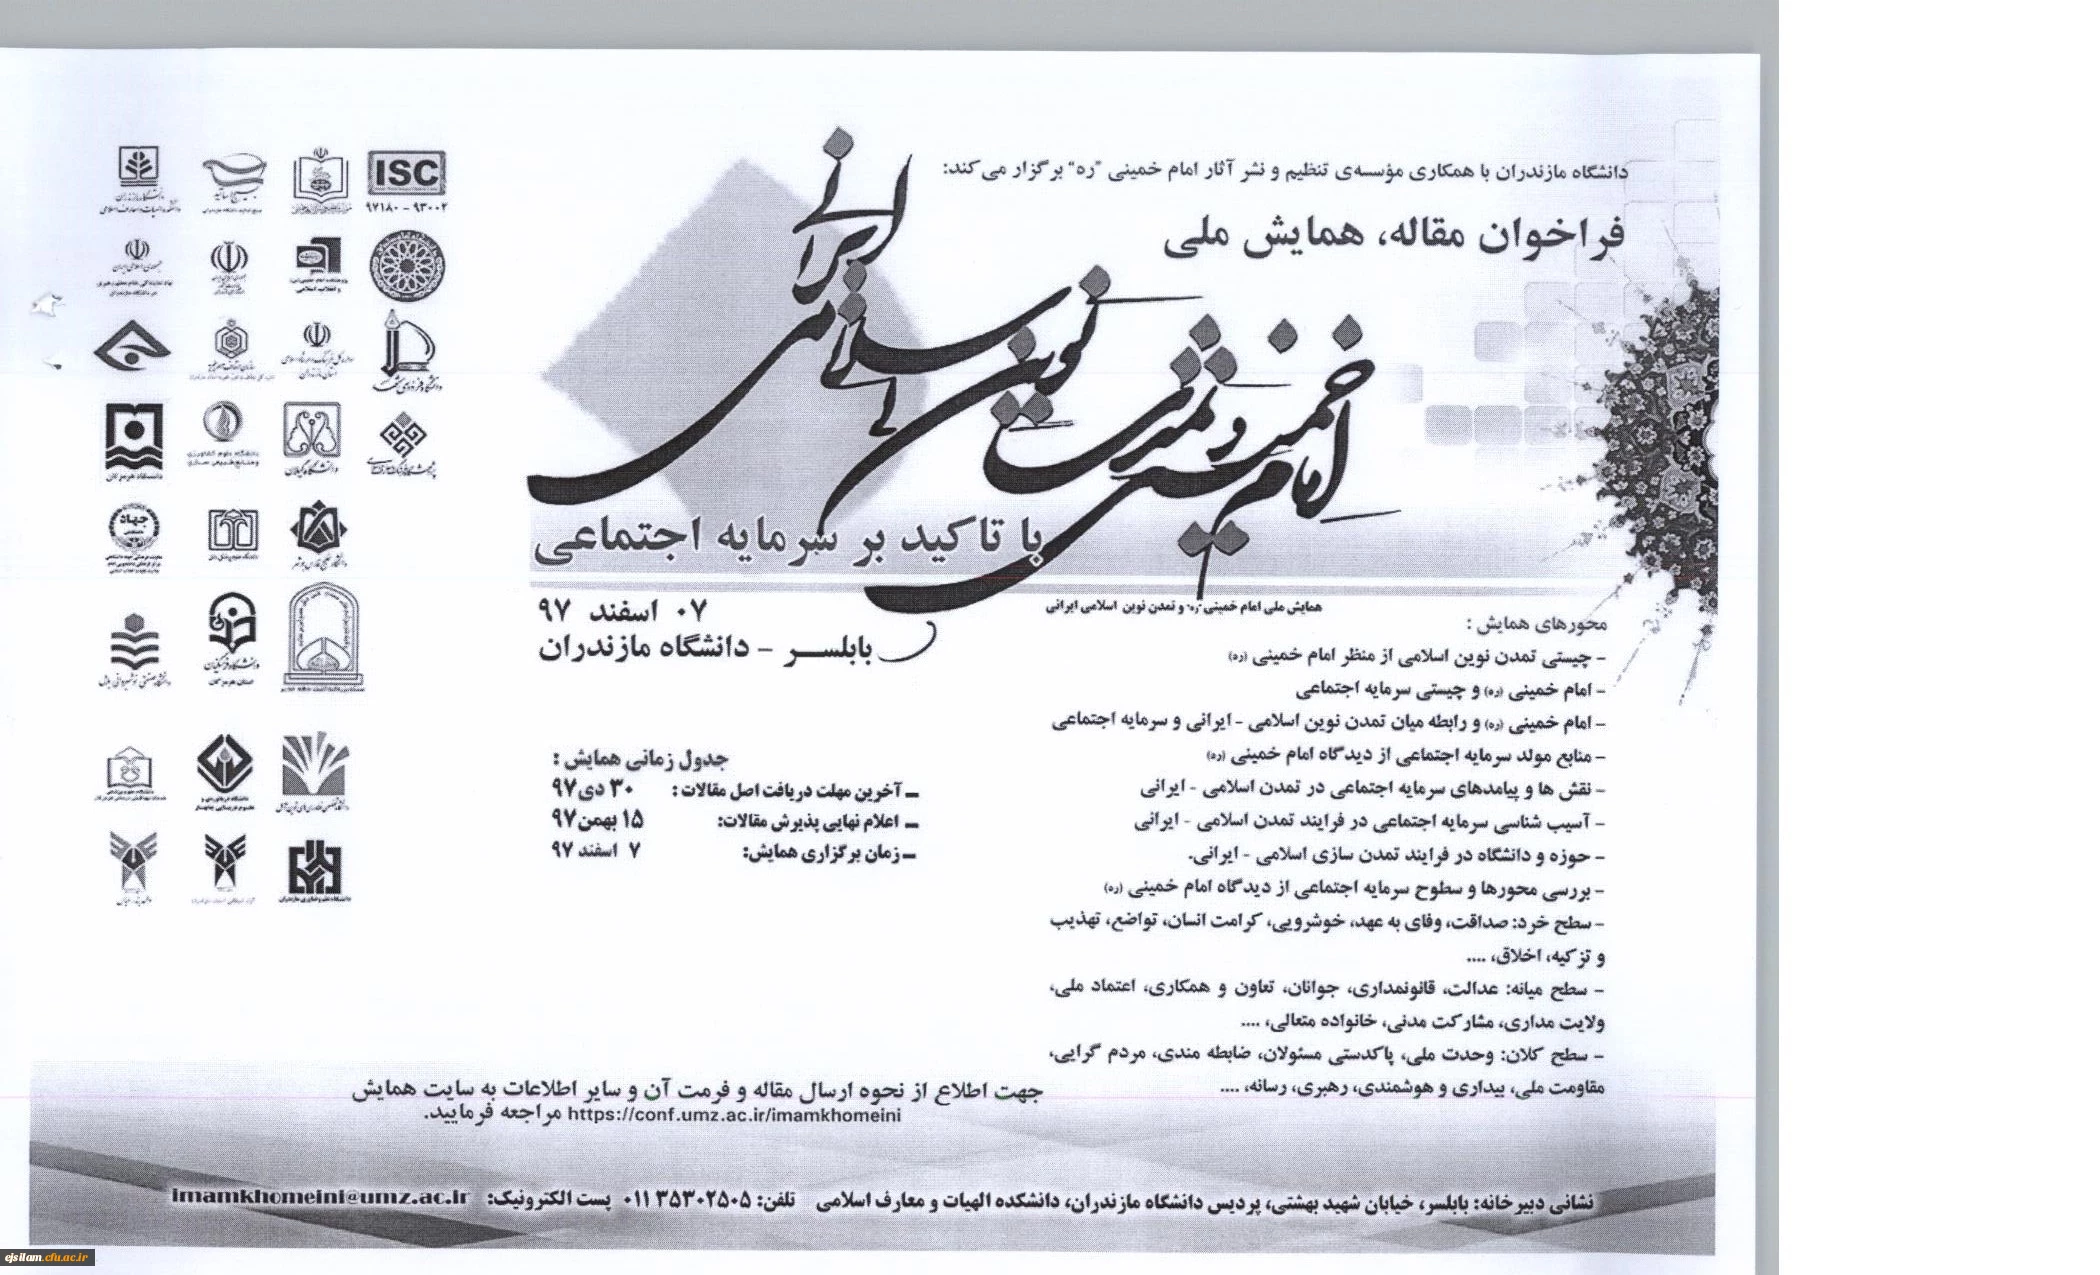 دانشگاه مازندران با همکاری مؤسسه‌ی تنظیم و نشر آثار امام خمینی "ره" برگزار می‌کند:
فراخوان مقاله، همایش ملی
امام خمینی و تمدن نوین اسلامی ایرانی
با تاکید بر سرمایه اجتماعی
همایش ملی امام خمینی "ره" و تمدن نوین اسلامی ایرانی
۰۷ اسفند ۹۷
بابلسر - دانشگاه مازندران
محورهای همایش :
- چیستی تمدن نوین اسلامی از منظر امام خمینی (ره)
- امام خمینی (ره) و چیستی سرمایه اجتماعی
- امام خمینی (ره) و رابطه میان تمدن نوین اسلامی - ایرانی و سرمایه اجتماعی
- منابع مولد سرمایه اجتماعی از دیدگاه امام خمینی (ره)
- نقش ها و پیامدهای سرمایه اجتماعی در تمدن اسلامی - ایرانی
- آسیب شناسی سرمایه اجتماعی در فرایند تمدن اسلامی - ایرانی
- حوزه و دانشگاه در فرایند تمدن سازی اسلامی - ایرانی.
- بررسی محورها و سطوح سرمایه اجتماعی از دیدگاه امام خمینی (ره)
- سطح خرد: صداقت، وفای به عهد، خوشرویی، کرامت انسان، تواضع، تهذیب
و تزکیه، اخلاق، ....
- سطح میانه: عدالت، قانونمداری، جوانان، تعاون و همکاری، اعتماد ملی،
ولایت مداری، مشارکت مدنی، خانواده متعالی، ....
- سطح کلان: وحدت ملی، پاکدستی مسئولان، ضابطه مندی، مردم گرایی،
مقاومت ملی، بیداری و هوشمندی، رهبری، رسانه، ....
جدول زمانی همایش :
- آخرین مهلت دریافت اصل مقالات : ۳۰ دی ۹۷
- اعلام نهایی پذیرش مقالات: ۱۵ بهمن ۹۷
- زمان برگزاری همایش: ۷ اسفند ۹۷
ISC
۹۷۱۸۰ - ۹۳۰۰۲
جهاد
جهت اطلاع از نحوه ارسال مقاله و فرمت آن و سایر اطلاعات به سایت همایش
https://conf.umz.ac.ir/imamkhomeini مراجعه فرمایید.
نشانی دبیرخانه: بابلسر، خیابان شهید بهشتی، پردیس دانشگاه مازندران، دانشکده الهیات و معارف اسلامی تلفن: ۰۱۱۳۵۳۰۲۵۰۵ پست الکترونیک: imamkhomeini@umz.ac.ir
ejsilam.cfu.ac.ir